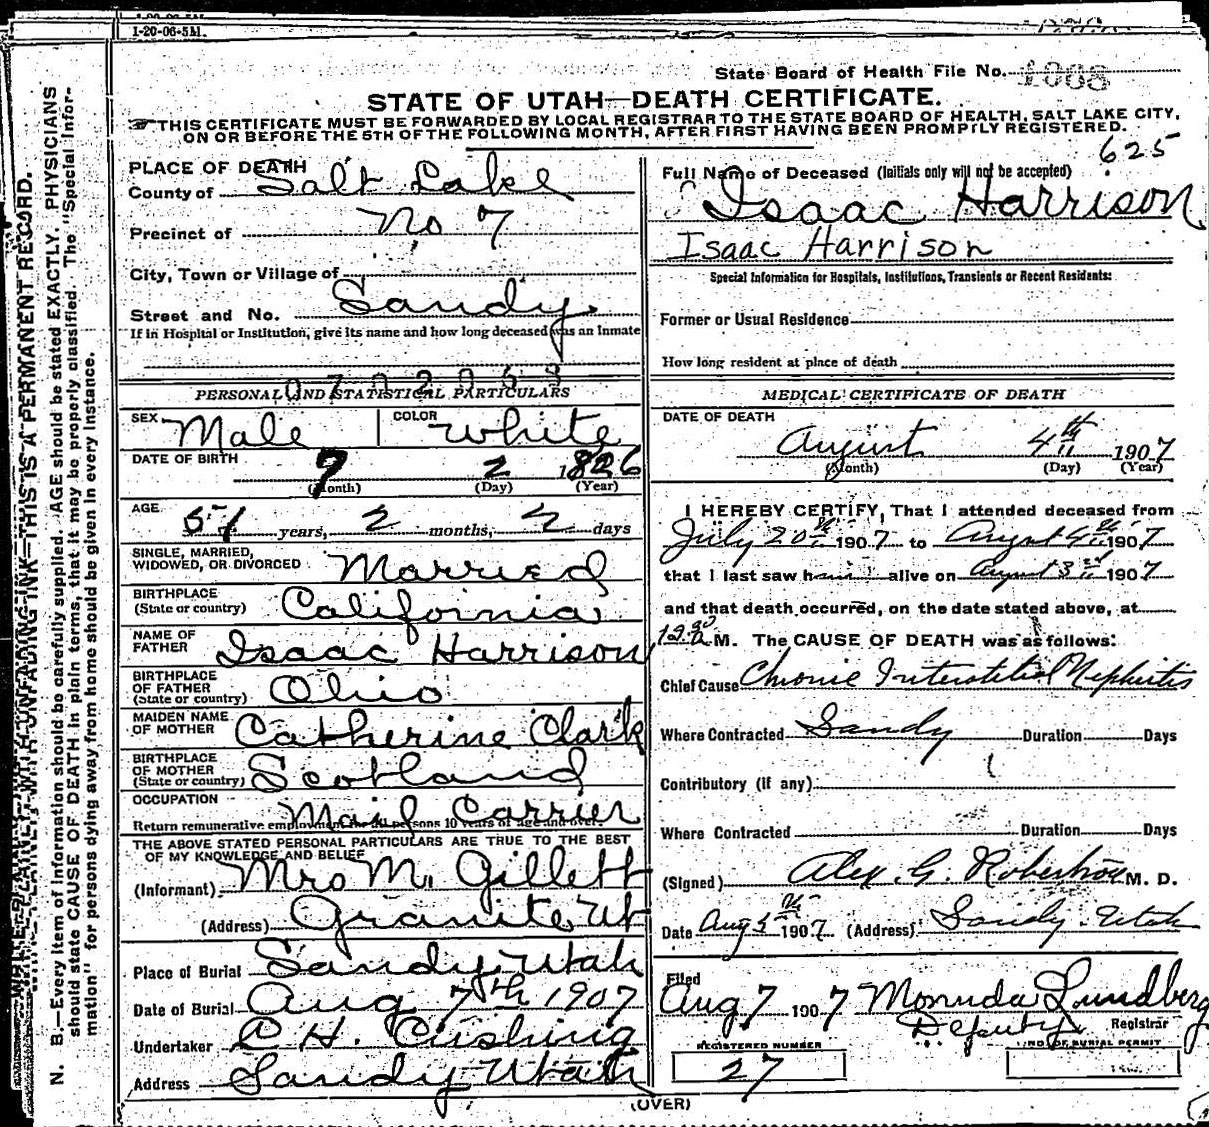 1-20-06-5M.
State Board of Health File No. 1068
STATE OF UTAH—DEATH CERTIFICATE.
THIS CERTIFICATE MUST BE FORWARDED BY LOCAL REGISTRAR TO THE STATE BOARD OF HEALTH, SALT LAKE CITY,
ON OR BEFORE THE 5TH OF THE FOLLOWING MONTH, AFTER FIRST HAVING BEEN PROMPTLY REGISTERED.
PLACE OF DEATH
County of Salt Lake
Precinct of No 7
City, Town or Village of
Street and No. Sandy
If in Hospital or Institution, give its name and how long deceased was an Inmate
PERSONAL AND STATISTICAL PARTICULARS
SEX Male COLOR White
DATE OF BIRTH
(Month) (Day) (Year)
AGE years, 2 months, 2 days
SINGLE, MARRIED,
WIDOWED, OR DIVORCED Married
BIRTHPLACE
(State or country) California
NAME OF
FATHER Isaac Harrison
BIRTHPLACE
OF FATHER
(State or country) Ohio
MAIDEN NAME
OF MOTHER Catherine Clark
BIRTHPLACE
OF MOTHER
(State or country) Scotland
OCCUPATION Mail Carrier
Return remunerative employment for all persons 10 years of age and over.
THE ABOVE STATED PERSONAL PARTICULARS ARE TRUE TO THE BEST
OF MY KNOWLEDGE AND BELIEF
(Informant) Mrs M. Gillett
(Address) Granite Ut
Place of Burial Sandy Utah
Date of Burial Aug 7th 1907
Undertaker C H. Cushing
Address Sandy Utah
625
Full Name of Deceased (Initials only will not be accepted)
Isaac Harrison
Isaac Harrison
Special Information for Hospitals, Institutions, Transients or Recent Residents:
Former or Usual Residence
How long resident at place of death
MEDICAL CERTIFICATE OF DEATH
DATE OF DEATH
August 4th 1907
(Month) (Day) (Year)
I HEREBY CERTIFY, That I attended deceased from
July 20th 1907 to August 4th 1907
that I last saw him alive on August 3rd 1907
and that death occurred, on the date stated above, at
M. The CAUSE OF DEATH was as follows:
Chief Cause Chronic Interstitial Nephritis
Where Contracted Sandy Duration Days
Contributory (if any)
Where Contracted Duration Days
(Signed) Alex. G. Robertson M. D.
Date Aug 5th 1907 (Address) Sandy. Utah
Filed
Aug 7 1907 Monuda Lundberg
Deputy Registrar
REGISTERED NUMBER
27
NO. OF BURIAL PERMIT
(OVER)
WRITE PLAINLY WITH UNFADING INK—THIS IS A PERMANENT RECORD.
N. B.—Every item of information should be carefully supplied. AGE should be stated EXACTLY. PHYSICIANS
should state CAUSE OF DEATH in plain terms, that it may be properly classified. The "Special Infor-
mation" for persons dying away from home should be given in every instance.